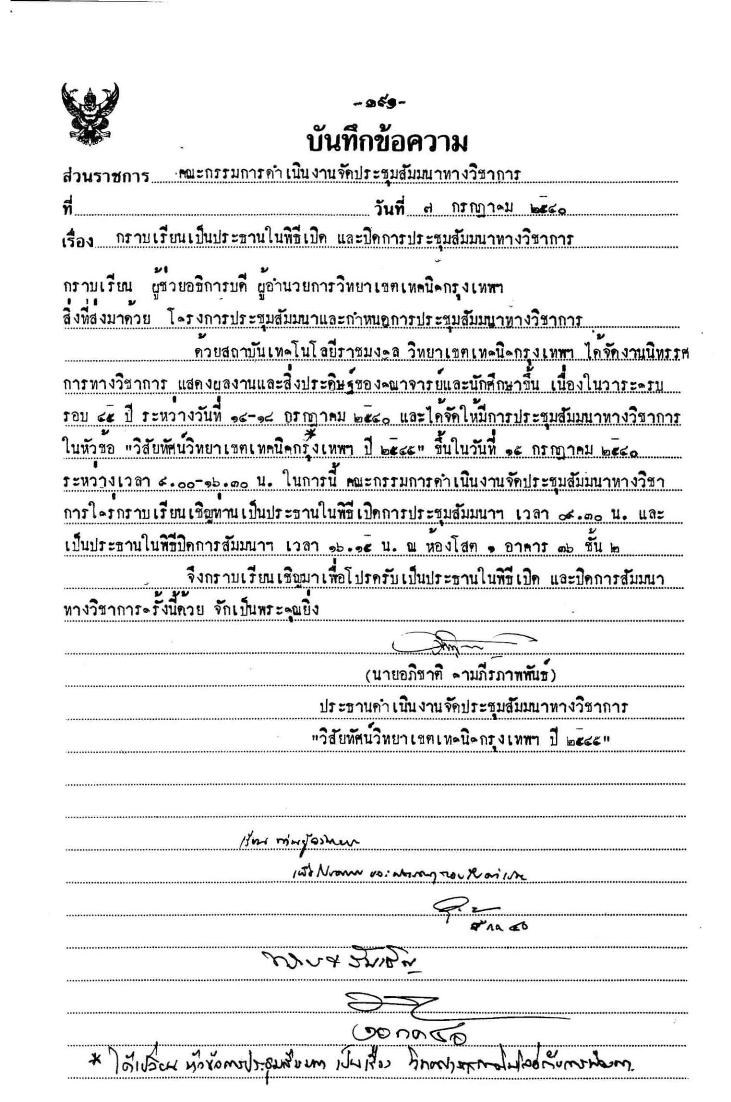 -๑๙๑-
บันทึกข้อความ
ส่วนราชการ คณะกรรมการดำเนินงานจัดประชุมสัมมนาทางวิชาการ
ที่ วันที่ ๗ กรกฎาคม ๒๕๔๐
เรื่อง กราบเรียนเป็นประธานในพิธีเปิด และปิดการประชุมสัมมนาทางวิชาการ
กราบเรียน ผู้ช่วยอธิการบดี ผู้อำนวยการวิทยาเขตเทคนิคกรุงเทพฯ
สิ่งที่ส่งมาด้วย โครงการประชุมสัมมนาและกำหนดการประชุมสัมมนาทางวิชาการ
ด้วยสถาบันเทคโนโลยีราชมงคล วิทยาเขตเทคนิคกรุงเทพฯ ได้จัดงานนิทรรศ
การทางวิชาการ แสดงผลงานและสิ่งประดิษฐ์ของคณาจารย์และนักศึกษาขึ้น เนื่องในวาระครบ
รอบ ๔๕ ปี ระหว่างวันที่ ๑๔-๑๘ กรกฎาคม ๒๕๔๐ และได้จัดให้มีการประชุมสัมมนาทางวิชาการ
ในหัวข้อ "วิสัยทัศน์วิทยาเขตเทคนิคกรุงเทพฯ ปี ๒๕๔๕" ขึ้นในวันที่ ๑๕ กรกฎาคม ๒๕๔๐
ระหว่างเวลา ๙.๐๐-๑๖.๓๐ น. ในการนี้ คณะกรรมการดำเนินงานจัดประชุมสัมมนาทางวิชา
การใคร่กราบเรียนเชิญท่านเป็นประธานในพิธีเปิดการประชุมสัมมนาฯ เวลา ๐๙.๓๐ น. และ
เป็นประธานในพิธีปิดการสัมมนาฯ เวลา ๑๖.๑๕ น. ณ ห้องโสต ๑ อาคาร ๓๖ ชั้น ๒
จึงกราบเรียนเชิญมาเพื่อโปรดรับเป็นประธานในพิธีเปิด และปิดการสัมมนา
ทางวิชาการครั้งนี้ด้วย จักเป็นพระคุณยิ่ง
(นายอภิชาติ คามภีรภาพพันธ์)
ประธานดำเนินงานจัดประชุมสัมมนาทางวิชาการ
"วิสัยทัศน์วิทยาเขตเทคนิคกรุงเทพฯ ปี ๒๕๔๕"
เรียน
๙ กค ๔๐
๑๐ กค ๔๐
* ได้เปลี่ยน หัวข้อการประชุมสัมมนา เป็นเรื่อง